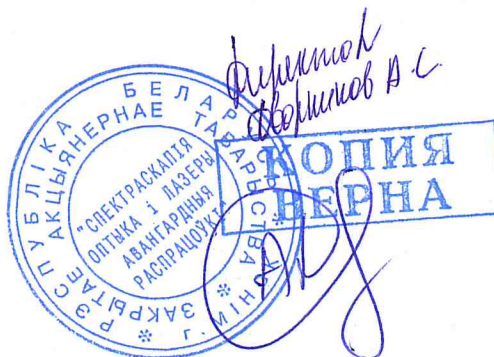 директор
Дворников А.С.
КОПИЯ
ВЕРНА
РЭСПУБЛІКА БЕЛАРУСЬ * г. МІНСК *
ЗАКРЫТАЕ АКЦЫЯНЕРНАЕ ТАВАРЫСТВА
"СПЕКТРАСКАПІЯ
ОПТЫКА І ЛАЗЕРЫ
АВАНГАРДНЫЯ
РАСПРАЦОЎКІ"